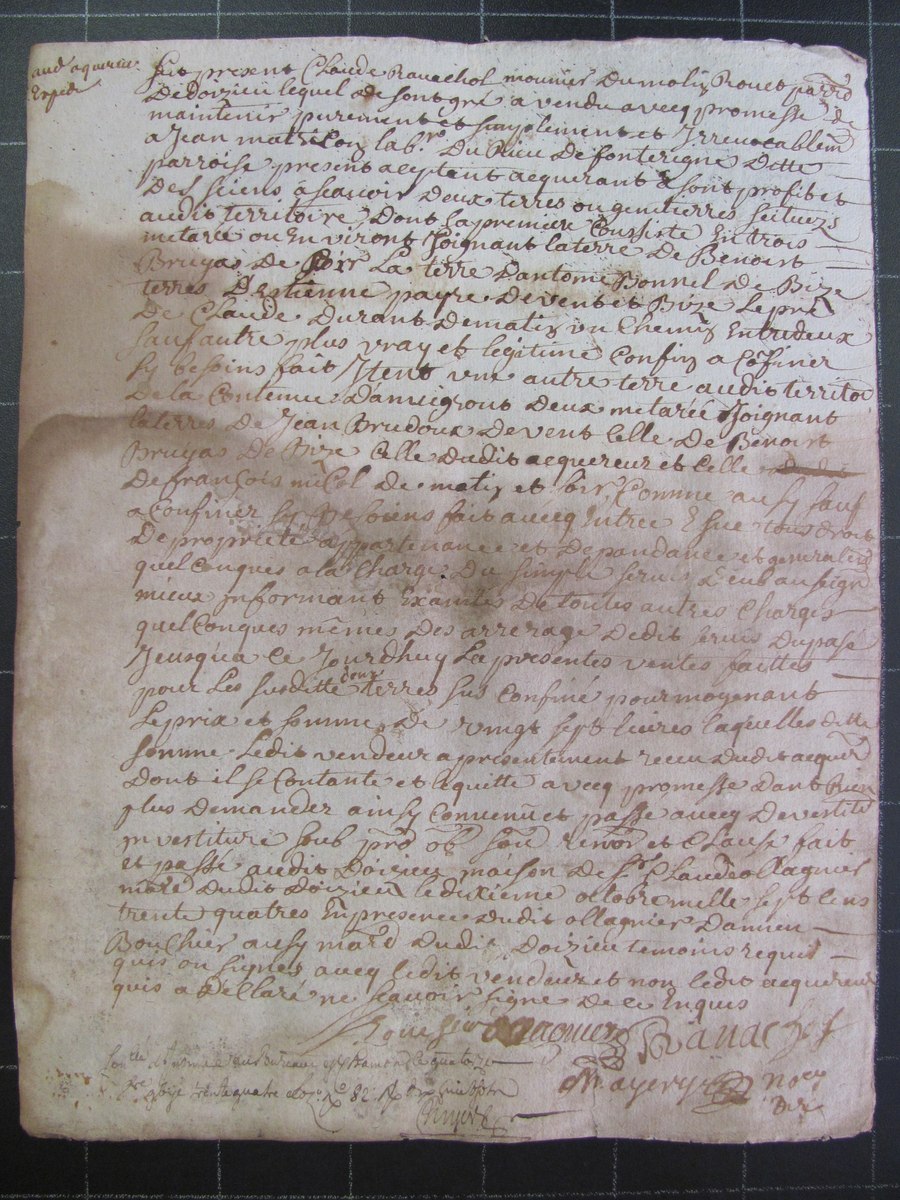 audt aquereur
Expedé
fut present Claude Ravachol mounier du molin Rouet parro
de doizieu lequel de sont gré a vendu avecq promesse de
maintenir purement et simplement et Irrevocablemt
a Jean matricon labr du Lieu de fonterigne ditte
parroise present aceptent acquerant a sont profit et
des sciens a scavoir deux terres ou genetierres scituezs
audit territoire dont la premiere Consiste En trois
metarée ou Environt Joignant la terre de Benoist
Bruyas de soir La terre dantoine Bonnel de Bize
terres destienne payre de vent et Bize Le pré
de Claude durant de matin un Chemin Entredeux
sauf autre plus vray et legitime Confin a Cofiner
sy besoins fait Itent une autre terre audit territoi
de la Contenue denvieront deux metarée Joignant
la terres de Jean Brudoux de vent Celle de Benoist
Bruyas de Bize Celle dudit acquereur et Celle
de françois niCol de matin et soir Comme ausy sauf
a Confiner sy Besoiens fait avecq Entrée Esue tous droit
de proprieté appartenance et depandance et generalemt
quelConques a la Charge du simple servis deub au seigr
mieux Informant Examtes de toutes autres Charges
quelConques mêmes des arrerage dedit servis du pasé
Jeusqua Ce Jourdhuy La presentes ventes faittes
pour Les susditte deux terres sus Confiné pour moyenant
Le prix et somme de vingt sept livres laquelles ditte
somme Ledit vendeur a presentement receu dudit acquer
dont il se Contante et lequitte avecq promesse dant Rien
plus demander ainsy Convenu et passe avecq devestite
Investiture soub pro ob soum renon et Clause fait
et passe audit doizieu maison de Sr Claude ollagnier
mard dudit doizieu le dixième octobre mille sept Cens
trente quatres En presence dudit ollagnier damien
Bouchier ausy mard dudit doizieu temoins requis
quis on signez avecq ledit vendeur et non ledit acquereur
quis a declaré ne scavoir signe de ce Enquis
Bouchier ollagnier Ravachol
Mayery no